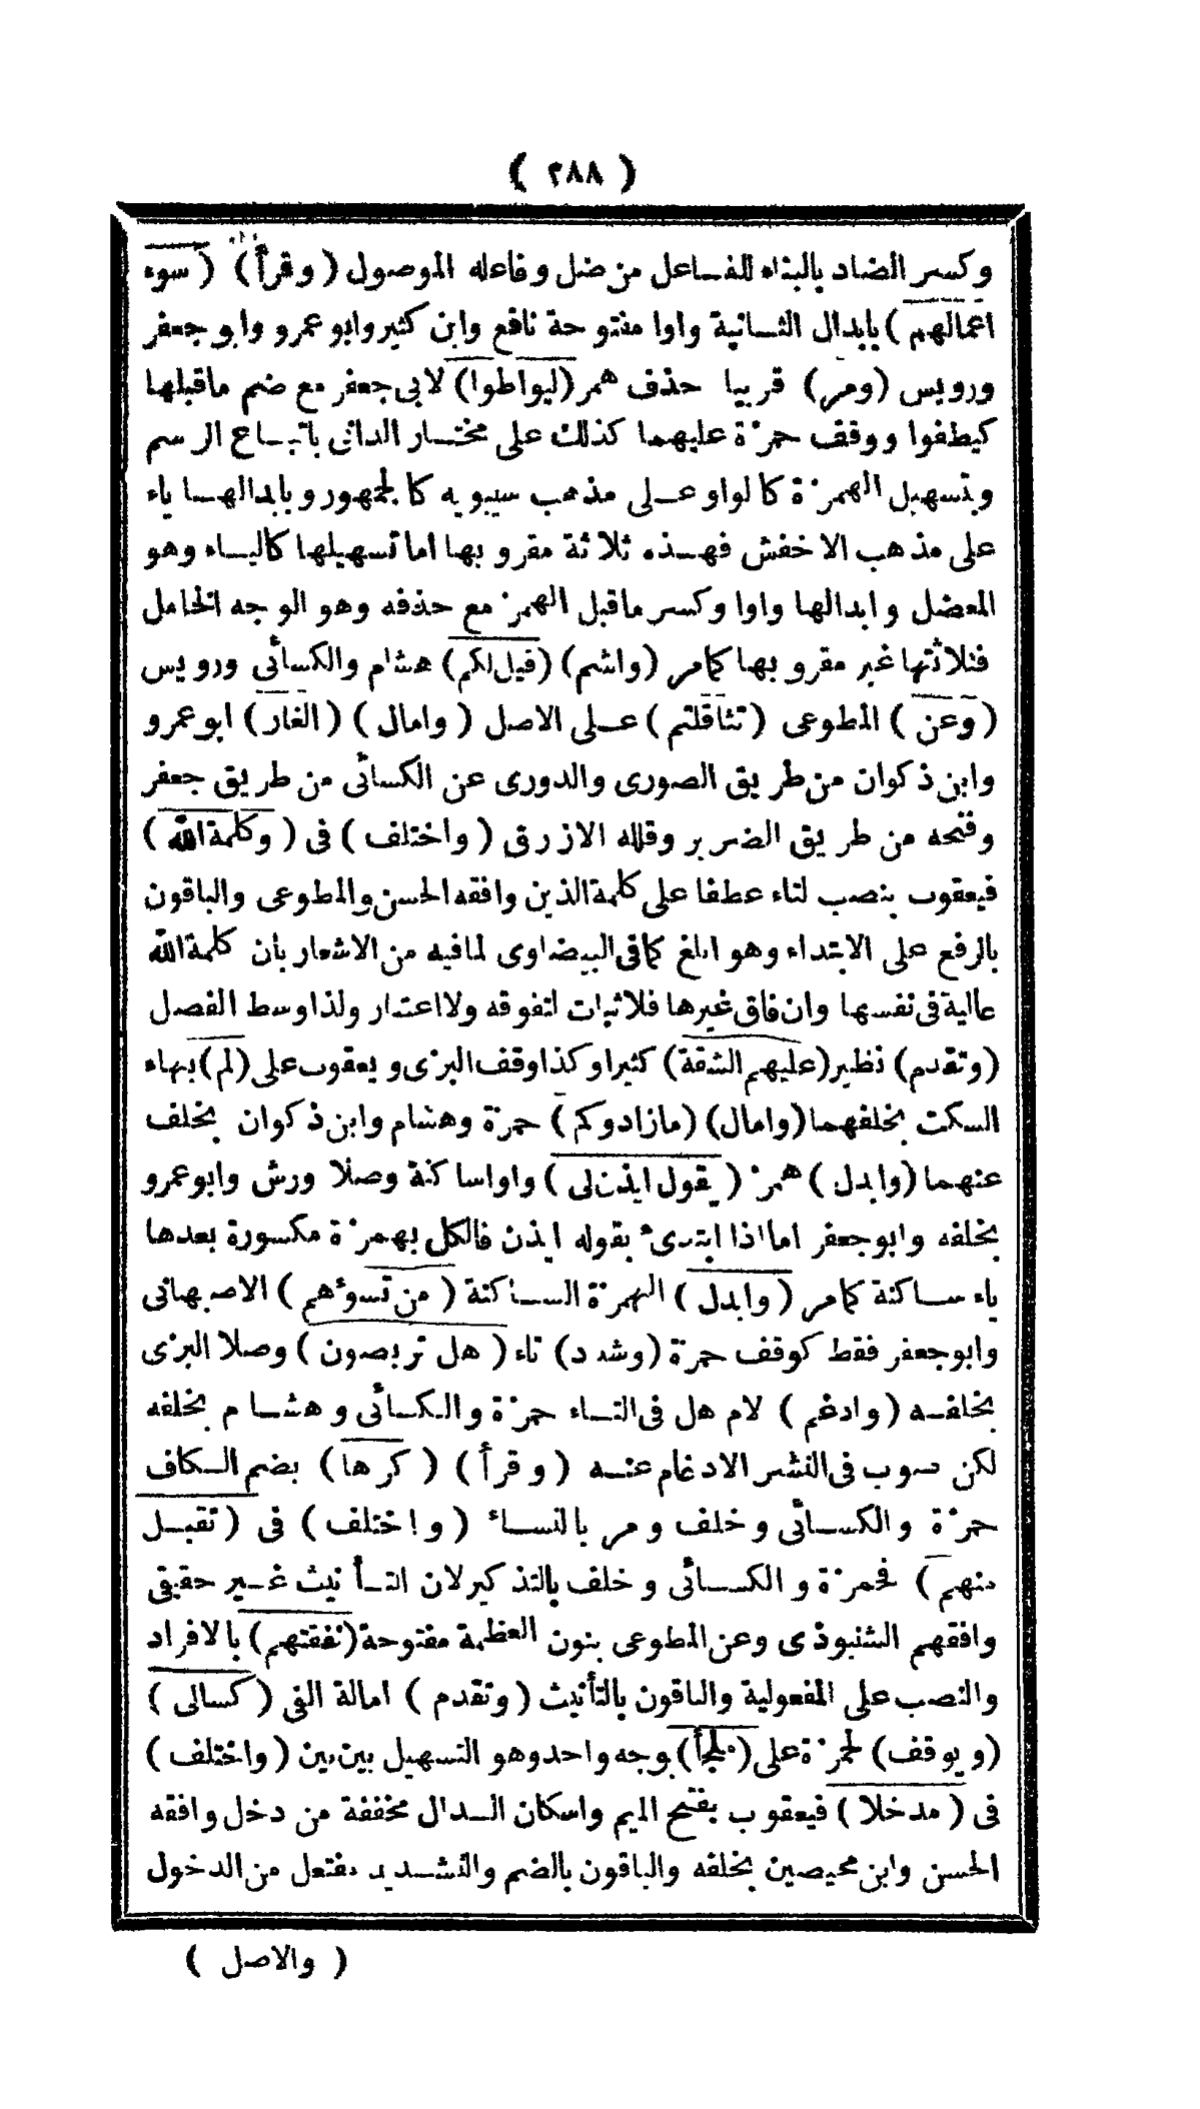 ( ٢٨٨ )
وكسر الضاد بالبناء للفاعل من ضل وفاعله الموصول ( وقرأ ) ( سوء
اعمالهم ) بابدال الثانية واوا مفتوحة نافع وابن كثير وابو عمرو وابو جعفر
ورويس (ومر) قريبا حذف همز (ليواطوا) لابى جعفر مع ضم ماقبلها
كيطفوا ووقف حمزة عليهما كذلك على مختار الدانى باتباع الرسم
وبتسهيل الهمزة كالواو على مذهب سيبويه كالجمهور وبابدالها ياء
على مذهب الاخفش فهذه ثلاثة مقرو بها اما تسهيلها كالياء وهو
المعضل وابدالها واوا وكسر ماقبل الهمز مع حذفه وهو الوجه الخامل
فثلاثتها غير مقرو بها كمامر (واشم) (قيل لكم) هشام والكسائى ورويس
(وعن ) المطوعى (تثاقلتم ) على الاصل ( وامال ) ( الغار ) ابو عمرو
وابن ذكوان من طريق الصورى والدورى عن الكسائى من طريق جعفر
وفتحه من طريق الضرير وقلله الازرق ( واختلف ) فى ( وكلمة الله )
فيعقوب بنصب لتاء عطفا على كلمة الذين وافقه الحسن والمطوعى والباقون
بالرفع على الابتداء وهو ابلغ كمافى البيضاوى لمافيه من الاشعار بأن كلمة الله
عالية فى نفسها وان فاق غيرها فلاثبات لتفوقه ولا اعتدار ولذا وسط الفصل
(وتقدم) نظير (عليهم الشقة) كثيرا وكذا وقف البزى ويعقوب على (لم) بهاء
السكت بخلفهما (وامال) (مازادوكم) حمزة وهشام وابن ذكوان بخلف
عنهما (وابدل ) همز ( يقول ايذن لى ) واوا ساكنة وصلا ورش وابو عمرو
بخلفه وابو جعفر اما اذا ابتدئ بقوله ايذن فالكل بهمزة مكسورة بعدها
ياء ساكنة كمامر ( وابدل ) الهمزة الساكنة ( من تسوءهم ) الاصبهانى
وابو جعفر فقط كوقف حمزة (وشدد) تاء ( هل تربصون ) وصلا البزى
بخلفه ( وادغم ) لام هل فى التاء حمزة والكسائى وهشام بخلفه
لكن صوب فى النشر الادغام عنه ( وقرأ ) ( كرها ) بضم الكاف
حمزة والكسائى وخلف ومر بالنساء ( واختلف ) فى ( تقبل
منهم ) فحمزة والكسائى وخلف بالتذكير لان التأنيث غير حقيقى
وافقهم الشنبوذى وعن المطوعى بنون العظمة مفتوحة (نفقتهم ) بالافراد
والنصب على المفعولية والباقون بالتأنيث ( وتقدم ) امالة الفى ( كسالى )
(ويوقف ) لحمزة على ( ملجأ ) بوجه واحد وهو التسهيل بين بين ( واختلف )
فى ( مدخلا ) فيعقوب بفتح الميم واسكان الدال مخففة من دخل وافقه
الحسن وابن محيصين بخلفه والباقون بالضم والتشديد مفتعل من الدخول
( والاصل )